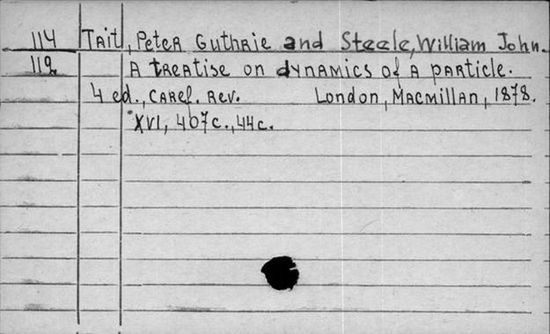 114 Tait, Peter Guthrie and Steele, William John.
119 A treatise on dynamics of a particle.
4 ed., caref. rev. London, Macmillan, 1878.
XVI, 407c., 44c.